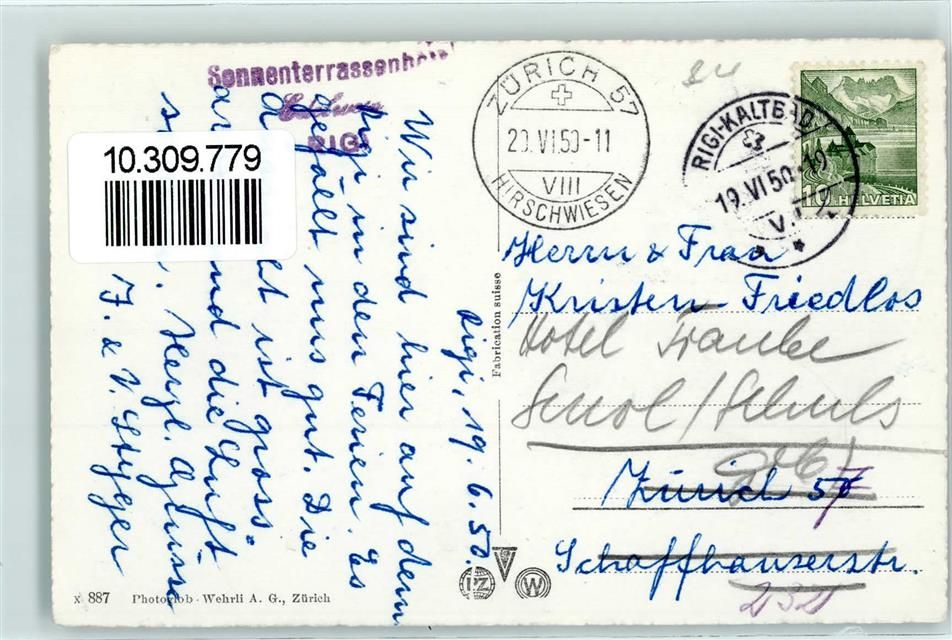 Sonnenterrassenhotel
RIGI
10.309.779
ZÜRICH 57
20.VI.50-11
VIII
HIRSCHWIESEN
RIGI-KALTBAD
19.VI.50-19
10 HELVETIA
Rigi, 19. 6. 50.
Wir sind hier auf dem
Rigi in den Ferien. Es
gefällt uns gut. Die
ist gross=
und die Luft
Herzl. Grüsse
J. & V. Styger
Fabrication suisse
Herrn & Frau
Kristen-Friedlos
Hotel Traube
Scuol/Schuls
Zürich 57
Schaffhauserstr.
PZ
W
x 887 Photoglob-Wehrli A. G., Zürich